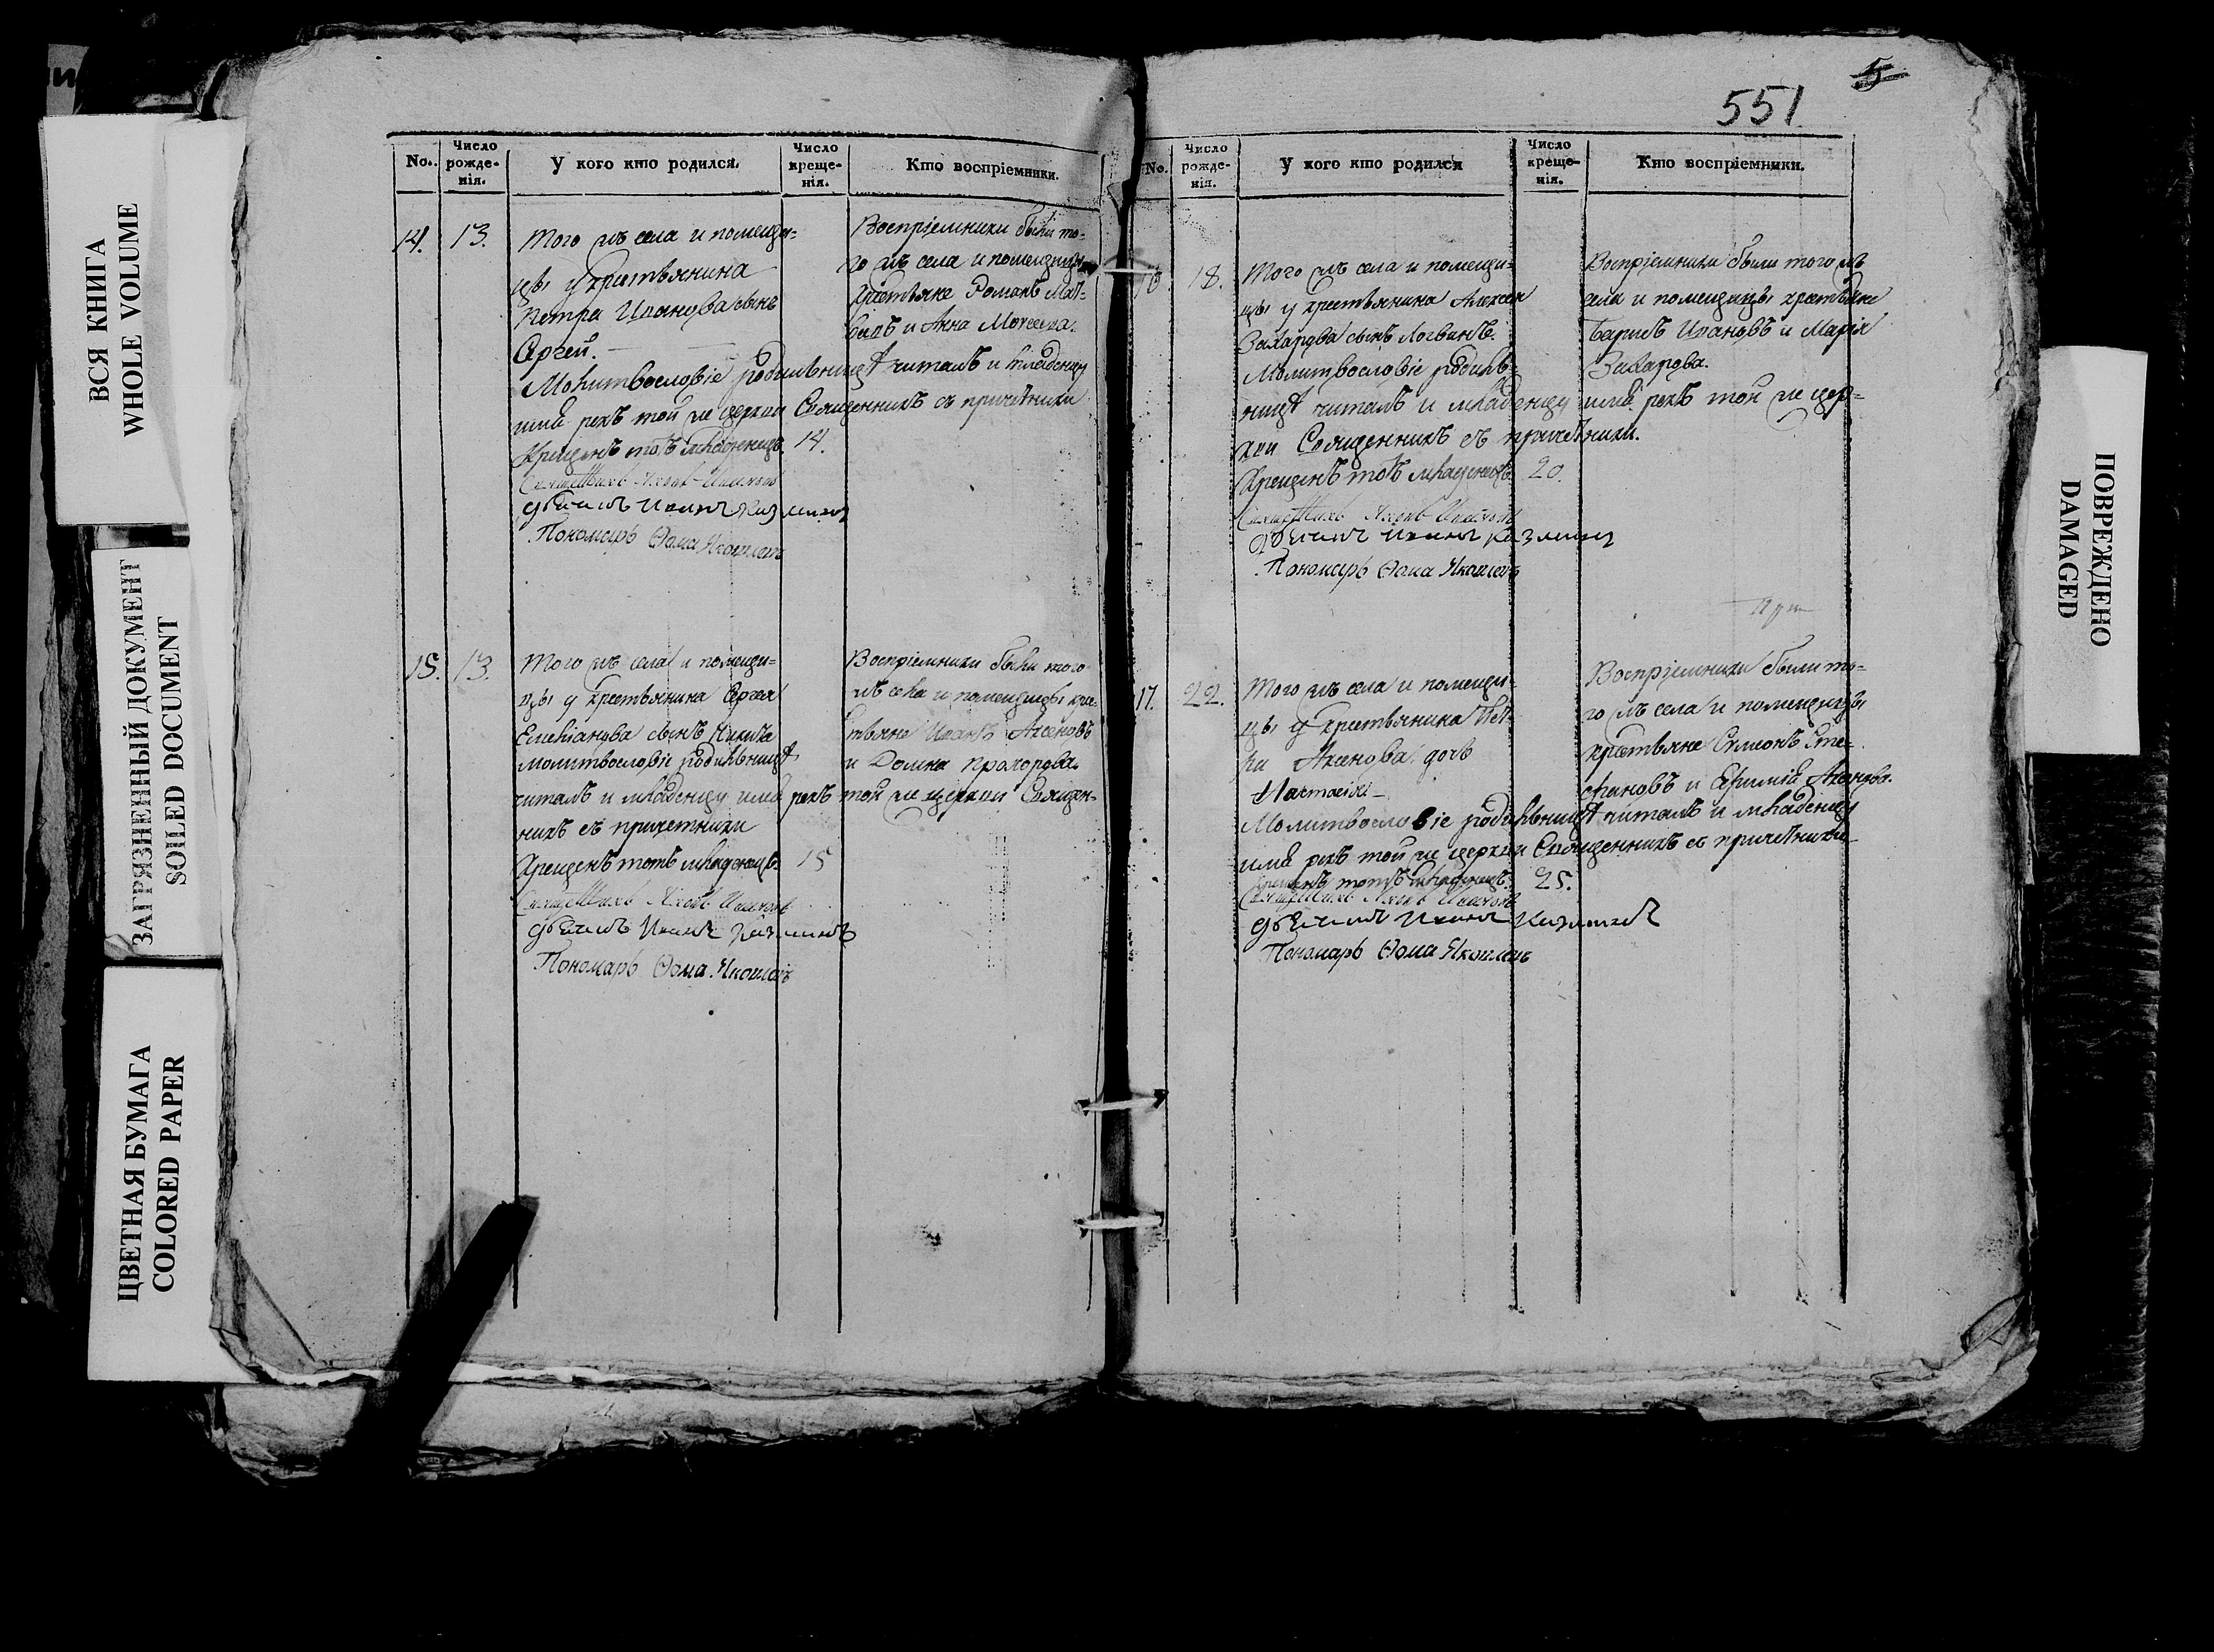 ВСЯ КНИГА
WHOLE VOLUME
ЗАГРЯЗНЕННЫЙ ДОКУМЕНТ
SOILED DOCUMENT
ЦВЕТНАЯ БУМАГА
COLORED PAPER
No. Число рожде-нія. У кого кто родился. Число креще-нія. Кто воспріемники.
14. 13.
Того жъ села и помещи-
цы у крестьянина
Петра Иванова сынъ
Сергей.
Молитвословіе родильницѣ читалъ и младенцу
имя рекъ той же церкви Священникъ съ причетники
Крещенъ тотъ младенецъ. 14.
Священникъ Яковъ Ивановъ
дьячокъ Иванъ Казминъ
Пономарь Ѳома Яковлевъ
Воспріемники были то-
го жъ села и помещицы
крестьяне Романъ
и Анна Моисеева.
15. 13.
Того жъ села и помещи-
цы у крестьянина Сергея
Емельянова сынъ Никита
молитвословіе родильницѣ
читалъ и младенцу имя рекъ той же церкви Священ-
никъ съ причетники
Крещенъ тотъ младенецъ. 15
Священникъ Яковъ Ивановъ
дьячокъ Иванъ Казминъ
Пономарь Ѳома Яковлевъ
Воспріемники были того
жъ села и помещицы кре-
стьяне Иванъ Аксеновъ
и Домна Прохорова.
5
551
No. Число рожде-нія. У кого кто родился Число креще-нія. Кто воспріемники.
16. 18.
Того жъ села и помещи-
цы у крестьянина Алексея
Захарова сынъ Логвинъ.
Молитвословіе родиль-
ницѣ читалъ и младенцу имя рекъ той же цер-
кви Священникъ съ причетники.
Крещенъ тотъ младенецъ. 20.
Священникъ Яковъ Ивановъ
дьячокъ Иванъ Казминъ
Пономарь Ѳома Яковлевъ
Воспріемники были того жъ
села и помещицы крестьяне
Борисъ Ивановъ и Марія
Захарова.
17. 22.
Того жъ села и помещи-
цы у крестьянина
Аксенова дочь
Молитвословіе родильницѣ читалъ и младенцу
имя рекъ той же церкви Священникъ съ причетники
Крещенъ тотъ младенецъ. 25.
Священникъ Яковъ Ивановъ
дьячокъ Иванъ Казминъ
Пономарь Ѳома Яковлевъ
Воспріемники были то-
го жъ села и помещицы
крестьяне Симеонъ Сте-
фановъ и Ефимія Аксенова.
ПОВРЕЖДЕНО
DAMAGED